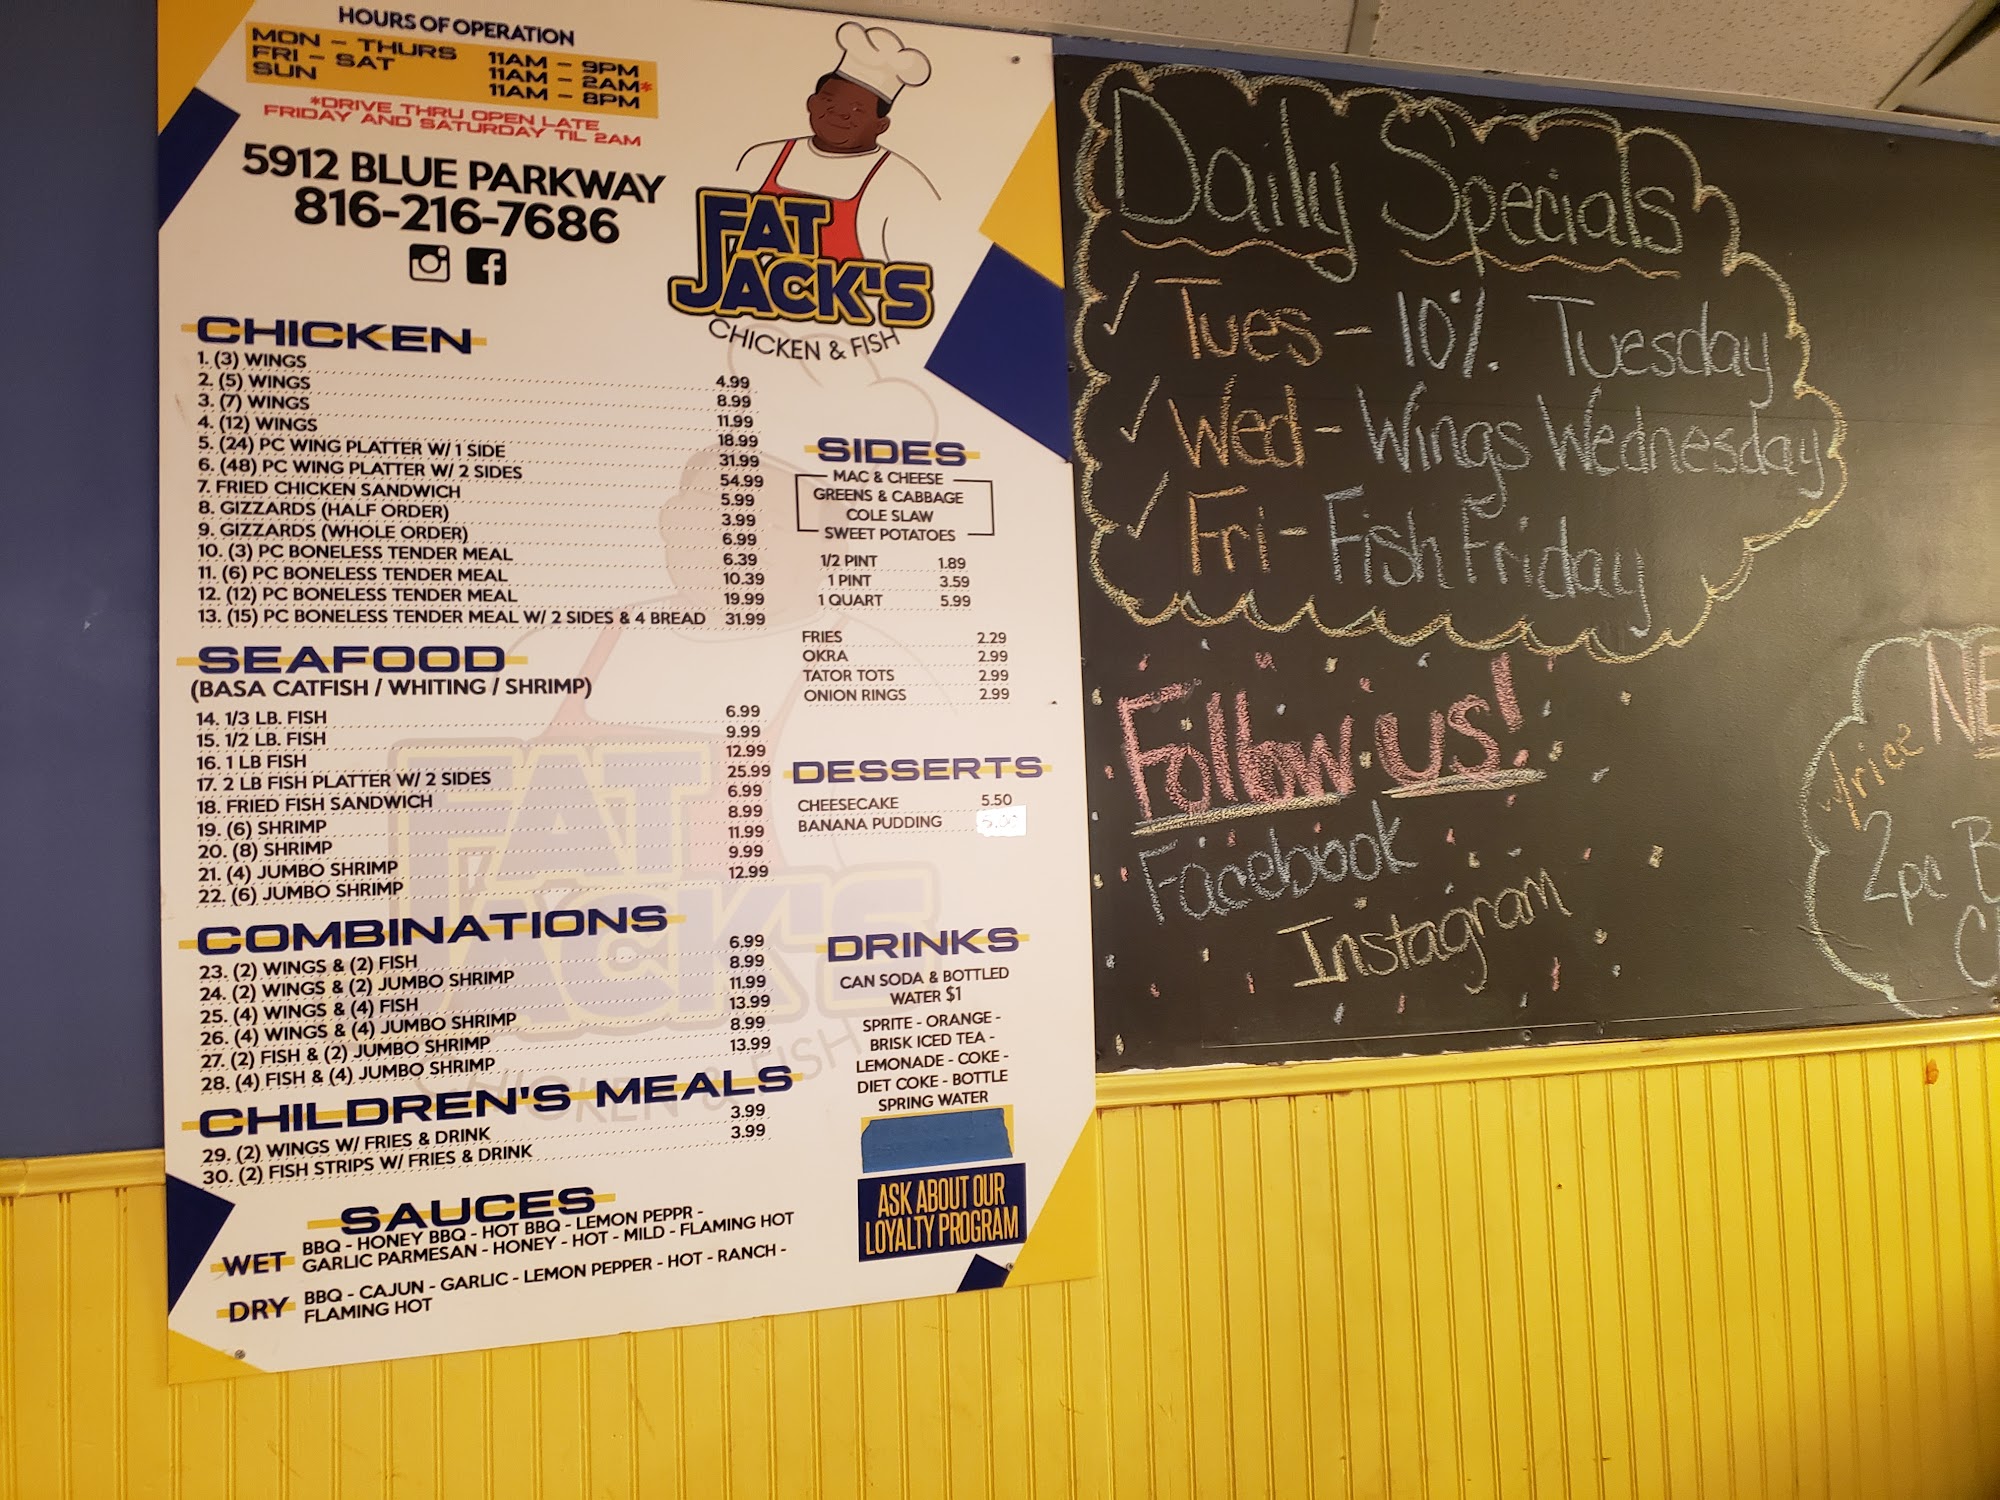 HOURS OF OPERATION
MON - THURS 11AM - 9PM
FRI - SAT 11AM - 2AM*
SUN 11AM - 8PM
*DRIVE THRU OPEN LATE
FRIDAY AND SATURDAY TIL 2AM
5912 BLUE PARKWAY
816-216-7686
FAT
JACK'S
CHICKEN & FISH
CHICKEN
1. (3) WINGS 4.99
2. (5) WINGS 8.99
3. (7) WINGS 11.99
4. (12) WINGS 18.99
5. (24) PC WING PLATTER W/ 1 SIDE 31.99
6. (48) PC WING PLATTER W/ 2 SIDES 54.99
7. FRIED CHICKEN SANDWICH 5.99
8. GIZZARDS (HALF ORDER) 3.99
9. GIZZARDS (WHOLE ORDER) 6.99
10. (3) PC BONELESS TENDER MEAL 6.39
11. (6) PC BONELESS TENDER MEAL 10.39
12. (12) PC BONELESS TENDER MEAL 19.99
13. (15) PC BONELESS TENDER MEAL W/ 2 SIDES & 4 BREAD 31.99
SEAFOOD
(BASA CATFISH / WHITING / SHRIMP)
14. 1/3 LB. FISH 6.99
15. 1/2 LB. FISH 9.99
16. 1 LB FISH 12.99
17. 2 LB FISH PLATTER W/ 2 SIDES 25.99
18. FRIED FISH SANDWICH 6.99
19. (6) SHRIMP 8.99
20. (8) SHRIMP 11.99
21. (4) JUMBO SHRIMP 9.99
22. (6) JUMBO SHRIMP 12.99
COMBINATIONS
23. (2) WINGS & (2) FISH 6.99
24. (2) WINGS & (2) JUMBO SHRIMP 8.99
25. (4) WINGS & (4) FISH 11.99
26. (4) WINGS & (4) JUMBO SHRIMP 13.99
27. (2) FISH & (2) JUMBO SHRIMP 8.99
28. (4) FISH & (4) JUMBO SHRIMP 13.99
CHILDREN'S MEALS
29. (2) WINGS W/ FRIES & DRINK 3.99
30. (2) FISH STRIPS W/ FRIES & DRINK 3.99
SAUCES
WET BBQ - HONEY BBQ - HOT BBQ - LEMON PEPPR -
GARLIC PARMESAN - HONEY - HOT - MILD - FLAMING HOT
DRY BBQ - CAJUN - GARLIC - LEMON PEPPER - HOT - RANCH -
FLAMING HOT
SIDES
MAC & CHEESE
GREENS & CABBAGE
COLE SLAW
SWEET POTATOES
1/2 PINT 1.89
1 PINT 3.59
1 QUART 5.99
FRIES 2.29
OKRA 2.99
TATOR TOTS 2.99
ONION RINGS 2.99
DESSERTS
CHEESECAKE 5.50
BANANA PUDDING
DRINKS
CAN SODA & BOTTLED
WATER $1
SPRITE - ORANGE -
BRISK ICED TEA -
LEMONADE - COKE -
DIET COKE - BOTTLE
SPRING WATER
ASK ABOUT OUR
LOYALTY PROGRAM
Daily Specials
Tues - 10% Tuesday
Wed - Wings Wednesday
Fri - Fish Friday
Follow us!
Facebook
Instagram
2pc